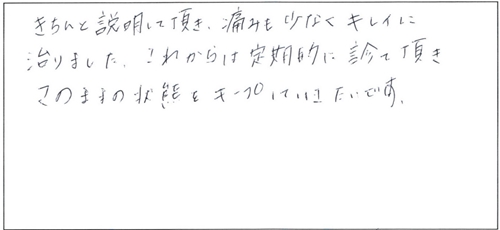 きちんと説明して頂き、痛みも少なくキレイに
治りました。これからは定期的に診て頂き
このままの状態をキープしていきたいです。